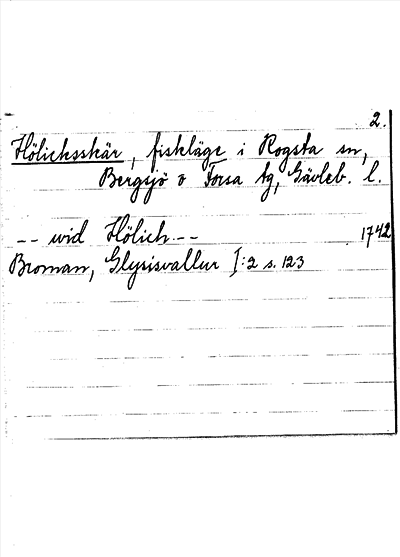 2.
Hölicksskär, fiskläge i Rogsta sn,
Bergsjö o Forsa tg, Gävleb. l.
-- wid Hölich -- 1742
Broman, Glysisvallur I:2 s. 123